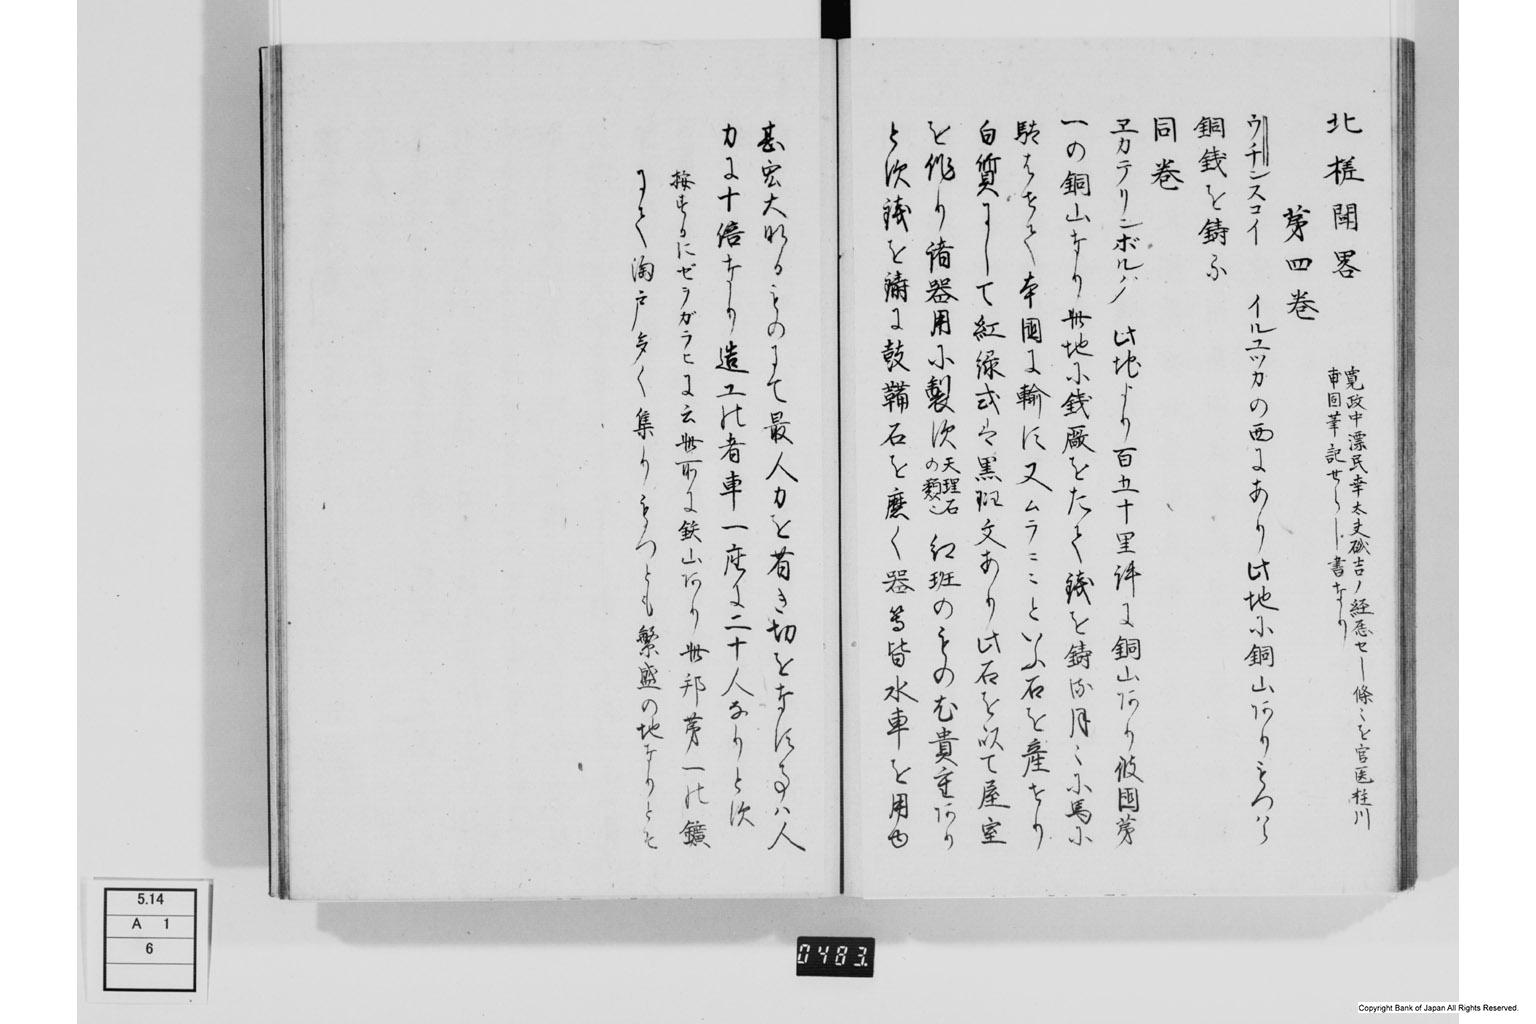 北槎聞畧
第四巻
寛政中漂民幸太夫磯吉ノ経歴セし條々を官医桂川
甫周筆記せらし書なり
ウチンスコイ イルユツカの西にあり此地に銅山ありもつはら
銅銭を鋳る
同巻
ヱカテリンボルハ 此地より百五十里許に銅山あり彼國第
一の銅山なり此地に銭廠をたて銭を鋳る月々に馬に
駄はせて本國に輸す又ムラここといふ石を産せり
白質にして紅緑或は黒斑文あり此石を以て屋室
を作り諸器用に製す
天理石
の類也
紅斑のもの尤貴重あり
とす銭を鋳に鼓鞴石を磨く器等皆水車を用ゆ
甚宏大なるものにて最人力を省き切をなす事ハ人
力に十倍なり造工の者車一座に二十人なりとす
按するにゼヲガラヒに云此所に鉄山あり此邦第一の鑛
にて淘戸多く集りもつとも繁盛の地なりとそ
5.14
A 1
6
0483
Copyright Bank of Japan All Rights Reserved.